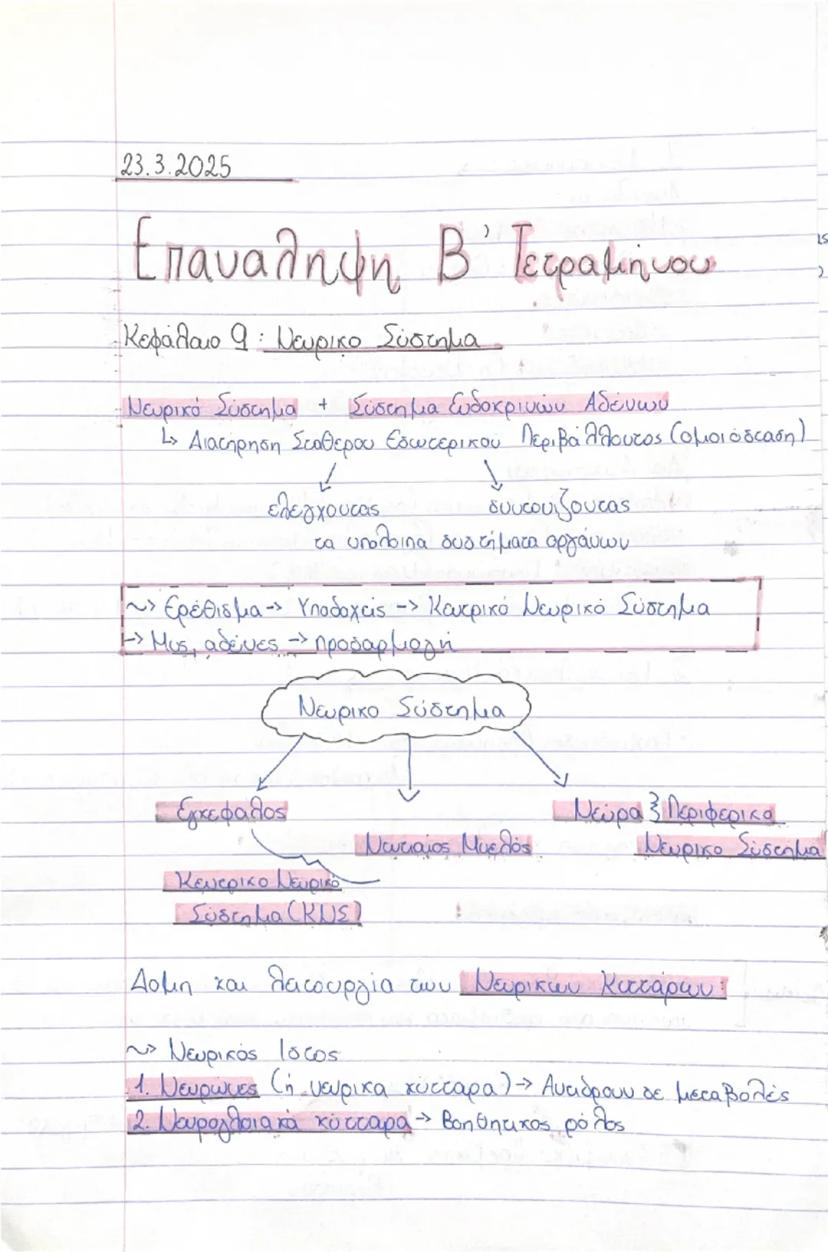 23.3.2025
Επαναληψη Β' Τετραμήνου
Κεφάλαιο 9: Νευρικο Σύστημα
Νευρικό Σύστημα + Σύστημα Ενδοκρινών Αδένων
↳ Διατήρηση Σταθερου Εσωτερικού Περιβάλλοντος (ομοιόσταση)
ελέγχοντας συντονιζοντας
τα υπολοιπα συστήματα οργάνων
~> Ερέθισμα -> Υποδοχείς -> Κεντρικό Νευρικό Σύστημα
-> Μυς, αδένες -> προσαρμογή
Νευρικο Σύστημα
Εγκεφαλος Νεύρα } Περιφερικο
Νωτιαίος Μυελός Νευρικο Σύστημα
Κεντρικο Νευρικό
Σύστημα (ΚΝΣ)
Δομη και λειτουργία των Νευρικων Κυττάρων:
~> Νευρικός Ιστος
1. Νευρώνες (ή νευρικα κύτταρα) -> Αντιδρουν σε μεταβολές
2. Νευρογλοιακά κύτταρα -> Βοηθητικος ρόλος